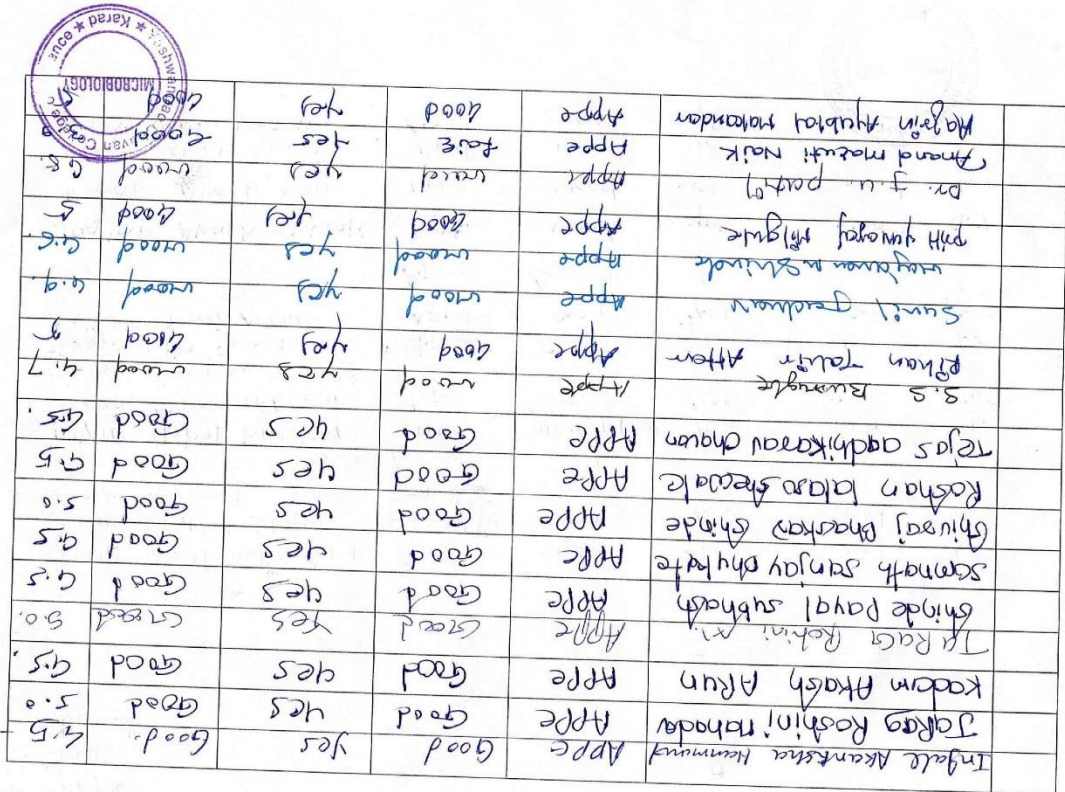 Ingale Akanksha Hanmant Appe Good Yes Good. 4.5
JaRag Roshini mahadev APPe Good Yes Good 5.0
kadam Akash ARun APPe Good Yes Good 4.5.
Rohini Appe Good Yes Good 5.0.
Shinde Payal subhash APPe Good Yes Good 4.5
somnath sanjay APPe Good Yes Good 4.5
Shivraj Bhaskar Shinde APPe Good Yes Good 5.0
Roshan lalaso shewale APPe Good Yes Good 4.5
Tejas aadhikarav chavan APPe Good Yes Good 4.5.
S.S Appe Good Yes Good 4.7
Attar Appe Good Yes Good 5
Sunil Jadhav Appe Good Yes Good 4.9.
Shinde Appe Good Yes Good 4.6.
yuvaraj Appe Good Yes Good 5
Dr. J. U. patil Appe Good Yes Good 4.8.
Anand maruti Naik Appe Yes Good
Appe Good Yes Good
MICROBIOLOGY
Karad